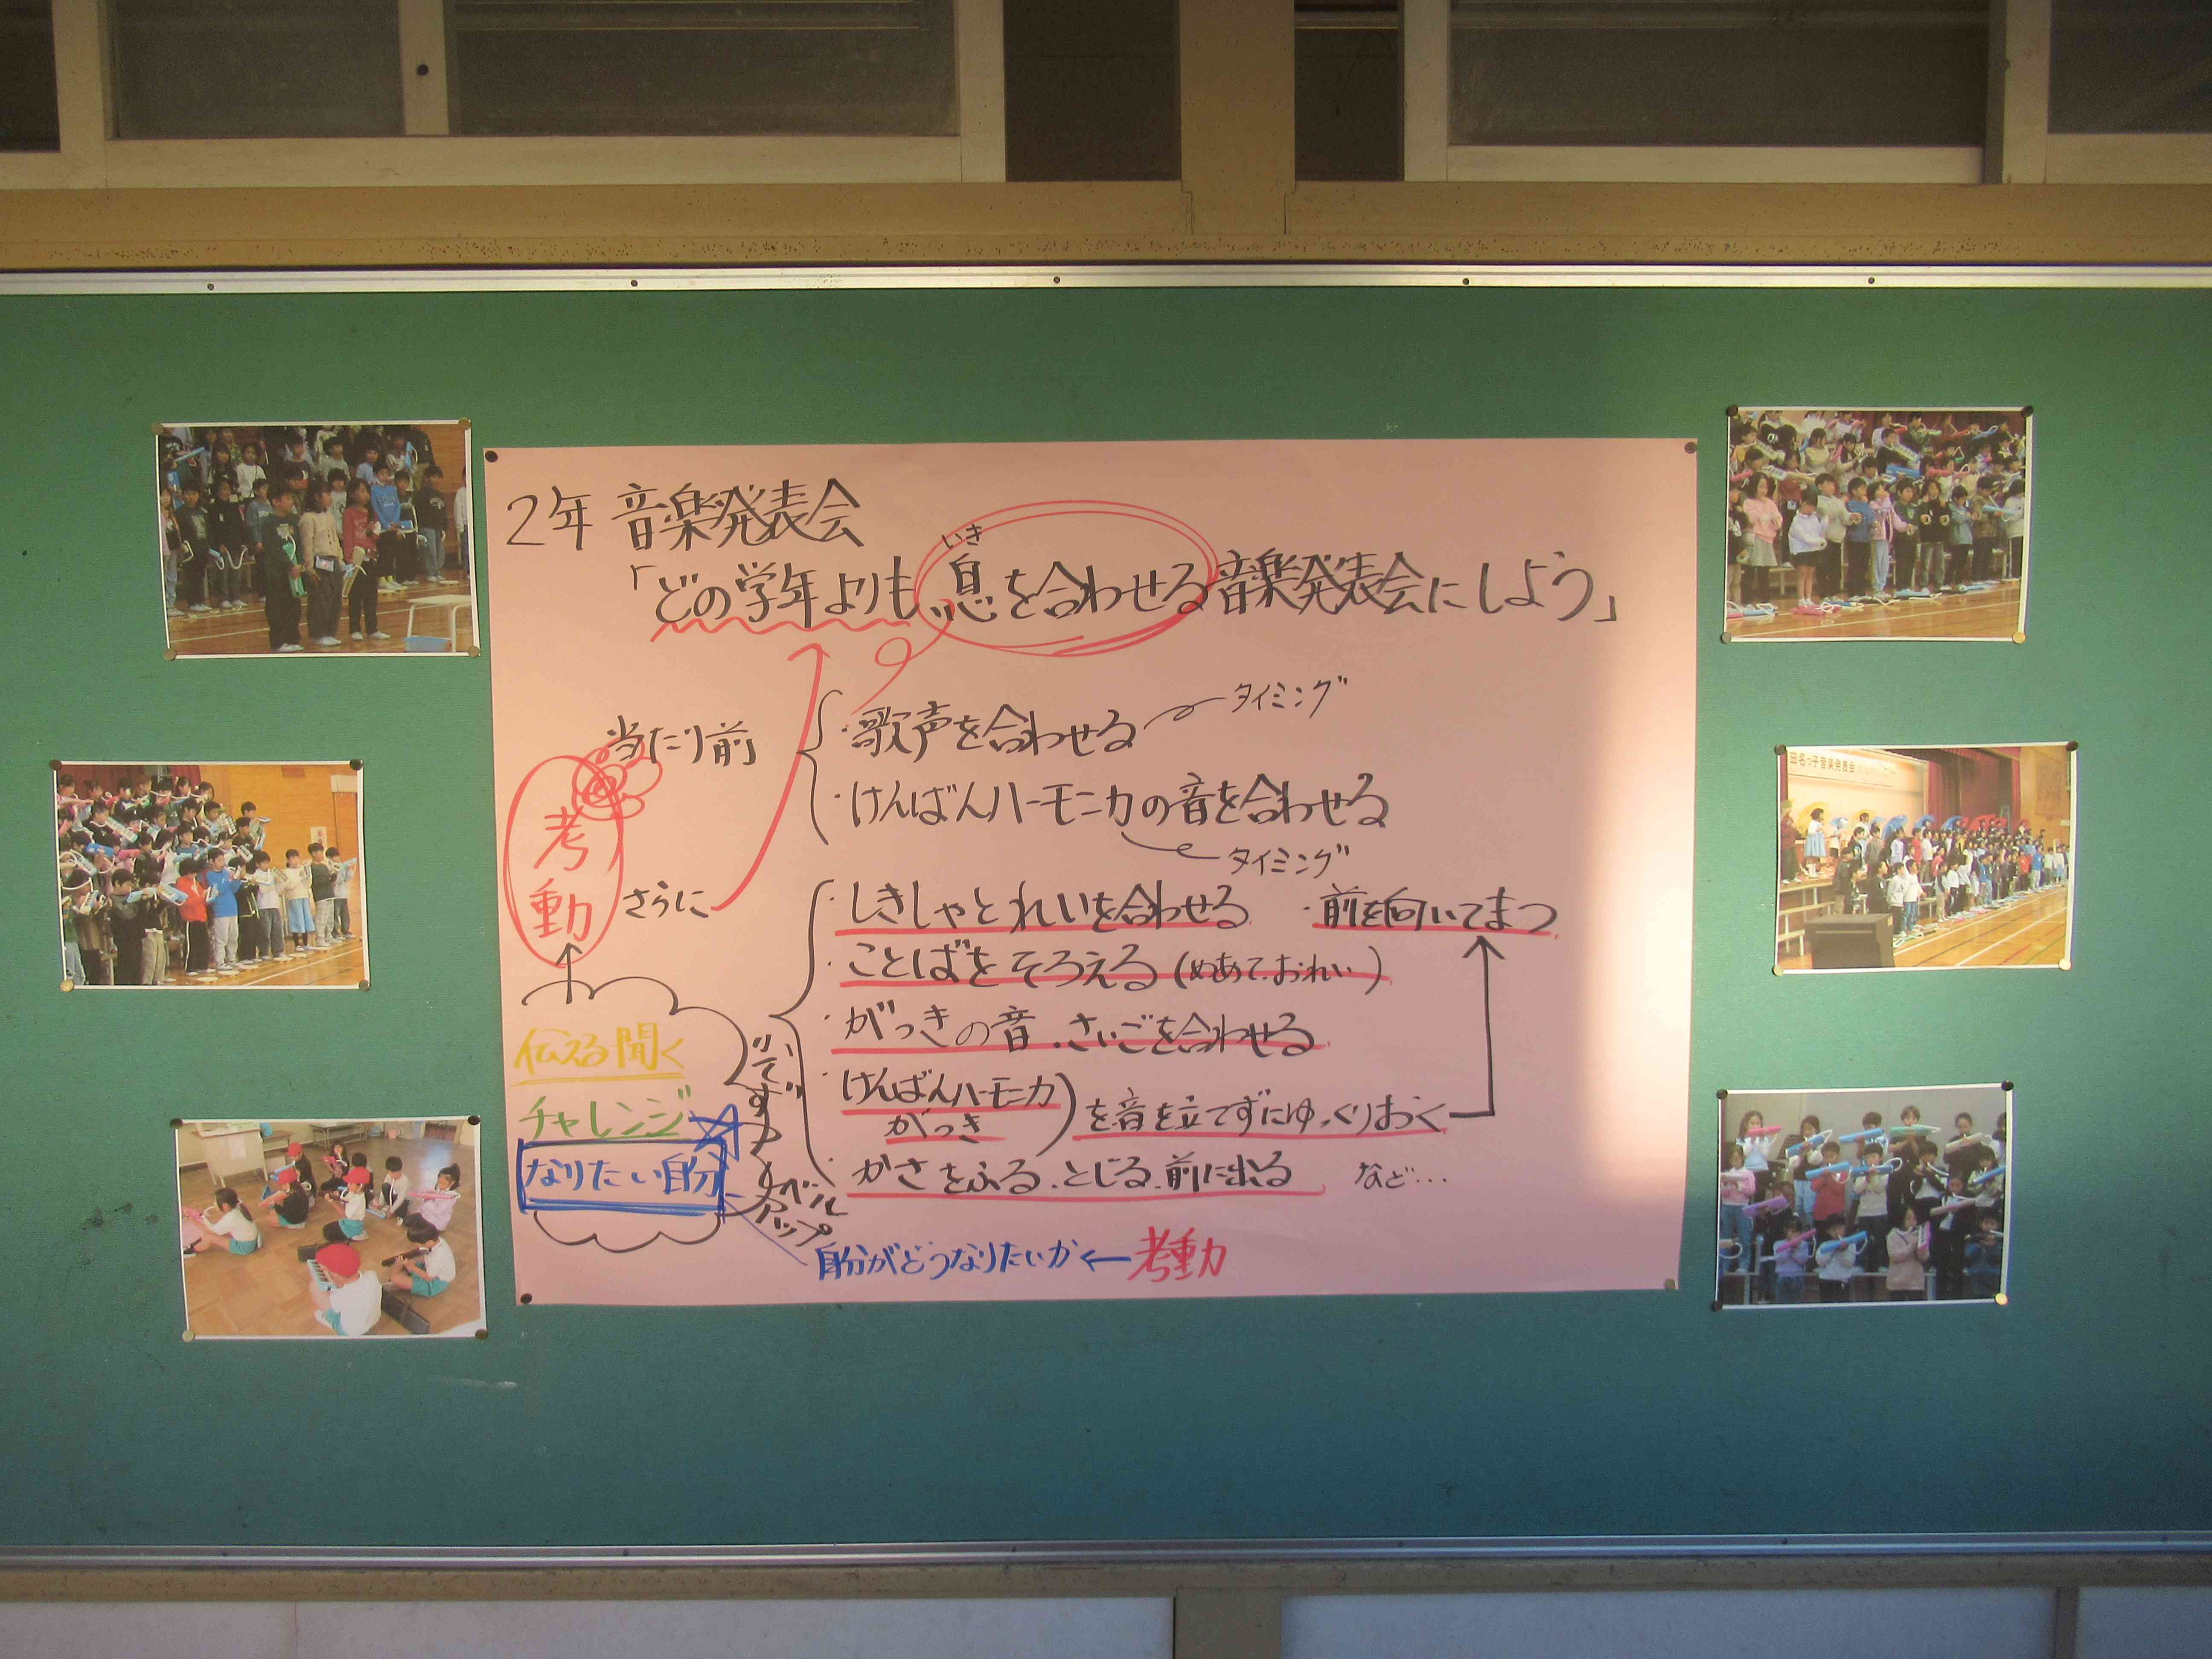 2年 音楽発表会
「どの学年よりも息を合わせる音楽発表会にしよう」
いき
当たり前
・歌声を合わせる
タイミング
・けんばんハーモニカの音を合わせる
タイミング
考動
さらに
・しきしゃとれいを合わせる ・前を向いてまつ
・ことばをそろえる(めあて、おれい)
・がっきの音、さいごを合わせる
・けんばんハーモニカ
がっき
を音を立てずにゆっくりおく
・かさをふる、とじる、前に出る など…
伝える聞く
チャレンジ
なりたい自分
レベルアップ
自分がどうなりたいか←考動
田名っ子音楽発表会